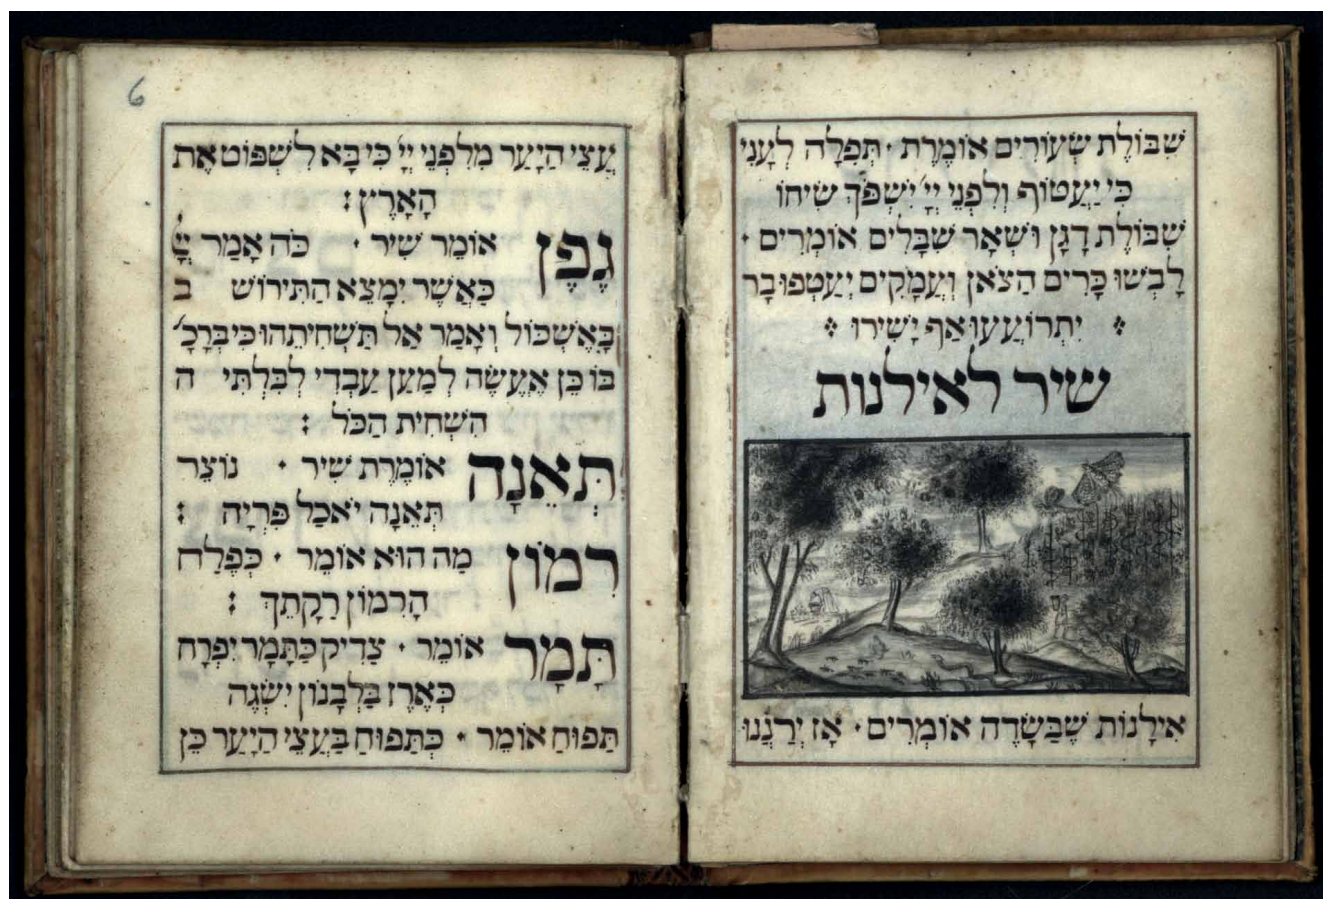 שִׁבּוֹלֶת שְׂעוֹרִים אוֹמֶרֶת · תְּפִלָּה לְעָנִי
כִּי יַעֲטוֹף וְלִפְנֵי יְיָ יִשְׁפֹּךְ שִׂיחוֹ
שִׁבּוֹלֶת דָגָן וּשְׁאָר שִׁבֳּלִים אוֹמְרִים ·
לָבְשׁוּ כָּרִים הַצֹּאן וַעֲמָקִים יַעַטְפוּ בָר
יִתְרוֹעֲעוּ אַף יָשִׁירוּ
שיר לאילנות
אִילָנוֹת שֶׁבַּשָּׂדֶה אוֹמְרִים · אָז יְרַנְּנוּ
6
עֲצֵי הַיָּעַר מִלִּפְנֵי יְיָ כִּי בָּא לִשְׁפּוֹט אֶת
הָאָרֶץ :
גֶּפֶן אוֹמֵר שִׁיר · כֹּה אָמַר יְיָ
כַּאֲשֶׁר יִמָּצֵא הַתִּירוֹשׁ ב
בָּאֶשְׁכּוֹל וְאָמַר אַל תַּשְׁחִיתֵהוּ כִּי בְרָכָ׳
בּוֹ כֵּן אֶעֱשֶׂה לְמַעַן עַבְדִי לְבִלְתִּי ה
הַשְׁחִית הַכֹּל :
תְּאֵנָה אוֹמֶרֶת שִׁיר · נוֹצֵר
תְּאֵנָה יֹאכַל פִּרְיָה :
רִמּוֹן מַה הוּא אוֹמֵר · כְּפֶלַח
הָרִמּוֹן רַקָּתֵךְ :
תָּמָר אוֹמֵר · צַדִיק כַּתָּמָר יִפְרָח
כְּאֶרֶז בַּלְּבָנוֹן יִשְׂגֶּה
תַּפּוּחַ אוֹמֵר · כְּתַפּוּחַ בַּעֲצֵי הַיַּעַר כֵּן